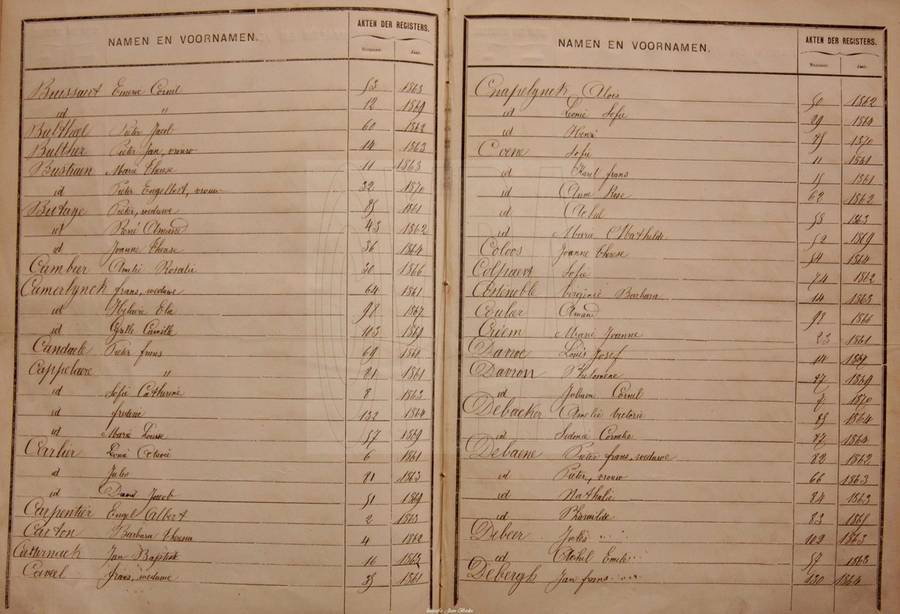 NAMEN EN VOORNAMEN. AKTEN DER REGISTERS.
Nummer. Jaar.
Buissaert Emerce Cornil 53 1863
id " 12 1869
Bultheel Pieter Jacob 60 1862
Bulthez Pieter Jan, vrouw 14 1863
Bustraen Marie Therese 11 1863
id Pieter Engelbert, vrouw 32 1870
Butage Pieter, weduwe 85 1861
id René Amand 43 1862
id Joanne Therese 36 1864
Cambier Amelie Rosalie 30 1866
Camerlynck frans, weduwe 64 1861
id Hylarie Ela 98 1867
id Camille 103 1869
Candaele Pieter frans 69
Cappelaere " 21 1861
id Sofie Catherine 8 1863
id 132 1864
id Marie Louise 57 1869
Carlier 6 1861
id Jules 91 1863
id David Jacob 51 1869
Carpentier Engel Albert 2 1863
Carton Barbara Theresia 4 1862
Catternack Jan Baptist 16 1863
Cawel frans, weduwe 35 1861
NAMEN EN VOORNAMEN. AKTEN DER REGISTERS.
Nummer. Jaar.
Chapelynck Alois 50 1862
id Leonie Sofie 29 1864
id Henri 75 1870
Coene Sofie 11 1861
id Karel frans 15 1861
id Anne Rose 62 1862
id Achiel 55 1863
id Marie Mathilde 52 1869
Coloos Joanne Therese 54 1864
Colpaert Sofie 74 1862
Costenoble Virginie Barbara 14 1863
Coulier Amand 98 1866
Creem Marie Joanne 23 1861
Danoe Louis Josef 14 1867
Davion Philomene 77 1869
id Juliaan Cornil 1870
Debacker Amelie Victorie 85 1864
id Sidonie Cornelie 87 1864
Debaene Pieter frans, weduwe 82 1862
id Pieter, vrouw 66 1863
id Nathalie 84 1863
id Philomilde 83 1865
Debeer Jules 102 1863
id Achiel Emiel 57 1863
Debergh Jan frans 130 1864